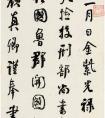 一月日金紫光祿
夫檢校刑部尚書
柱國魯郡開國
顏真卿謹奉書